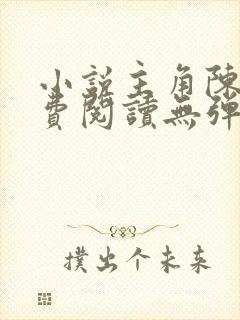 小説主角陳
費閱讀無彈
撲出个未来